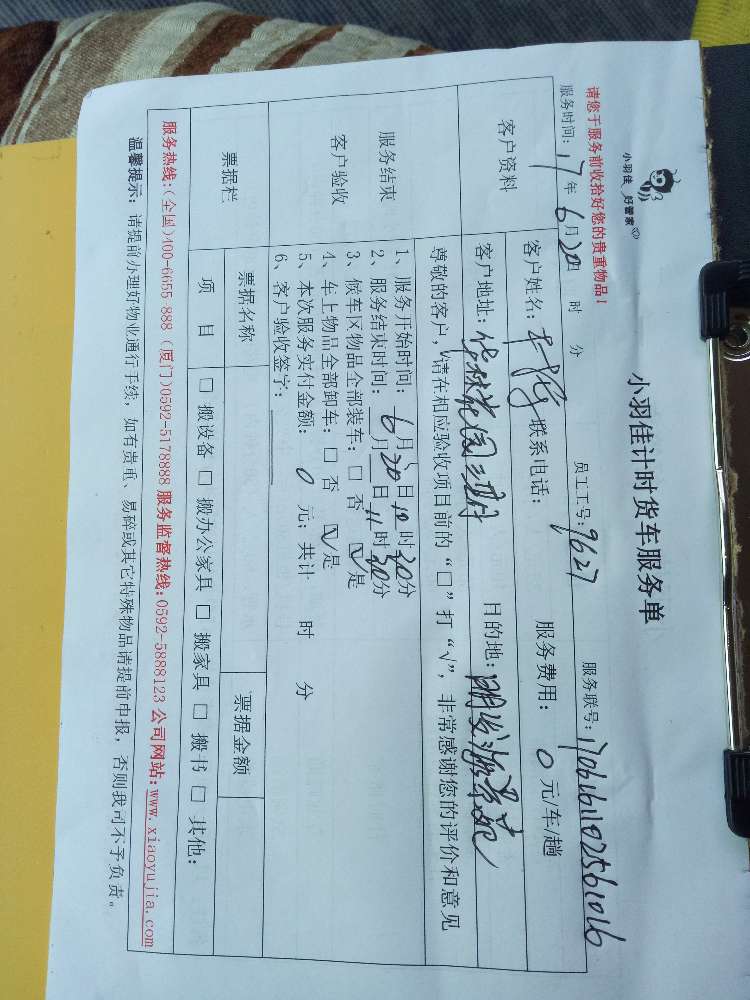 小羽佳 好管家
小羽佳计时货车服务单
请您于服务前收拾好您的贵重物品!
服务时间: 17年 6月20日 时 分 员工工号: 9627 服务联号: 1706161102561016
客户资料
客户姓名: 联系电话: 服务费用: 0 元/车/趟
客户地址: 花园 目的地: 明发海景苑
尊敬的客户,请在相应验收项目前的“□”打“√”,非常感谢您的评价和意见
服务结束
客户验收
1、服务开始时间: 6月20日10时30分
2、服务结束时间: 6月20日11时30分
3、候车区物品全部装车: □ 否 ☑ 是
4、车上物品全部卸车: □ 否 ☑ 是
5、本次服务实付金额: 0 元; 共计 时 分
6、客户验收签字:
票据栏
票据名称 票据金额
项 目 □ 搬设备 □ 搬办公家具 □ 搬家具 □ 搬书 □ 其他:
服务热线:(全国)400-6655 888 (厦门)0592-5178888 服务监督热线:0592-5888123 公司网站:www.xiaoyujia.com
温馨提示: 请提前办理好物业通行手续, 如有贵重、易碎或其它特殊物品请提前申报, 否则我司不予负责。